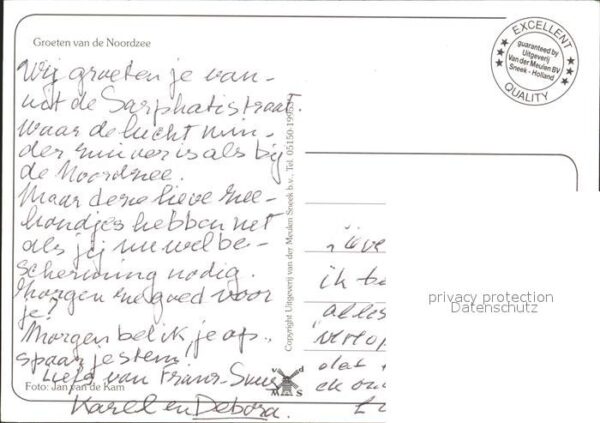 Groeten van de Noordzee
Wij groeten je van-
uit de Sarphatistraat.
waar de lucht min-
der zuiver is als bij
de Noordzee.
Maar deze lieve zee-
hondjes hebben net
als jij nu wel be-
scherming nodig.
Morgen goed voor
je?
Morgen bel ik je op.
spaar je stem!
Liefs van Frans-
Karel en Debora.
Foto: Jan van de Kam
Copyright Uitgeverij van der Meulen Sneek b.v., Tel. 05150-
EXCELLENT
guaranteed by
Uitgeverij
Van der Meulen BV
Sneek - Holland
QUALITY
v d
M S
ik
alles
dat
en
privacy protection
Datenschutz